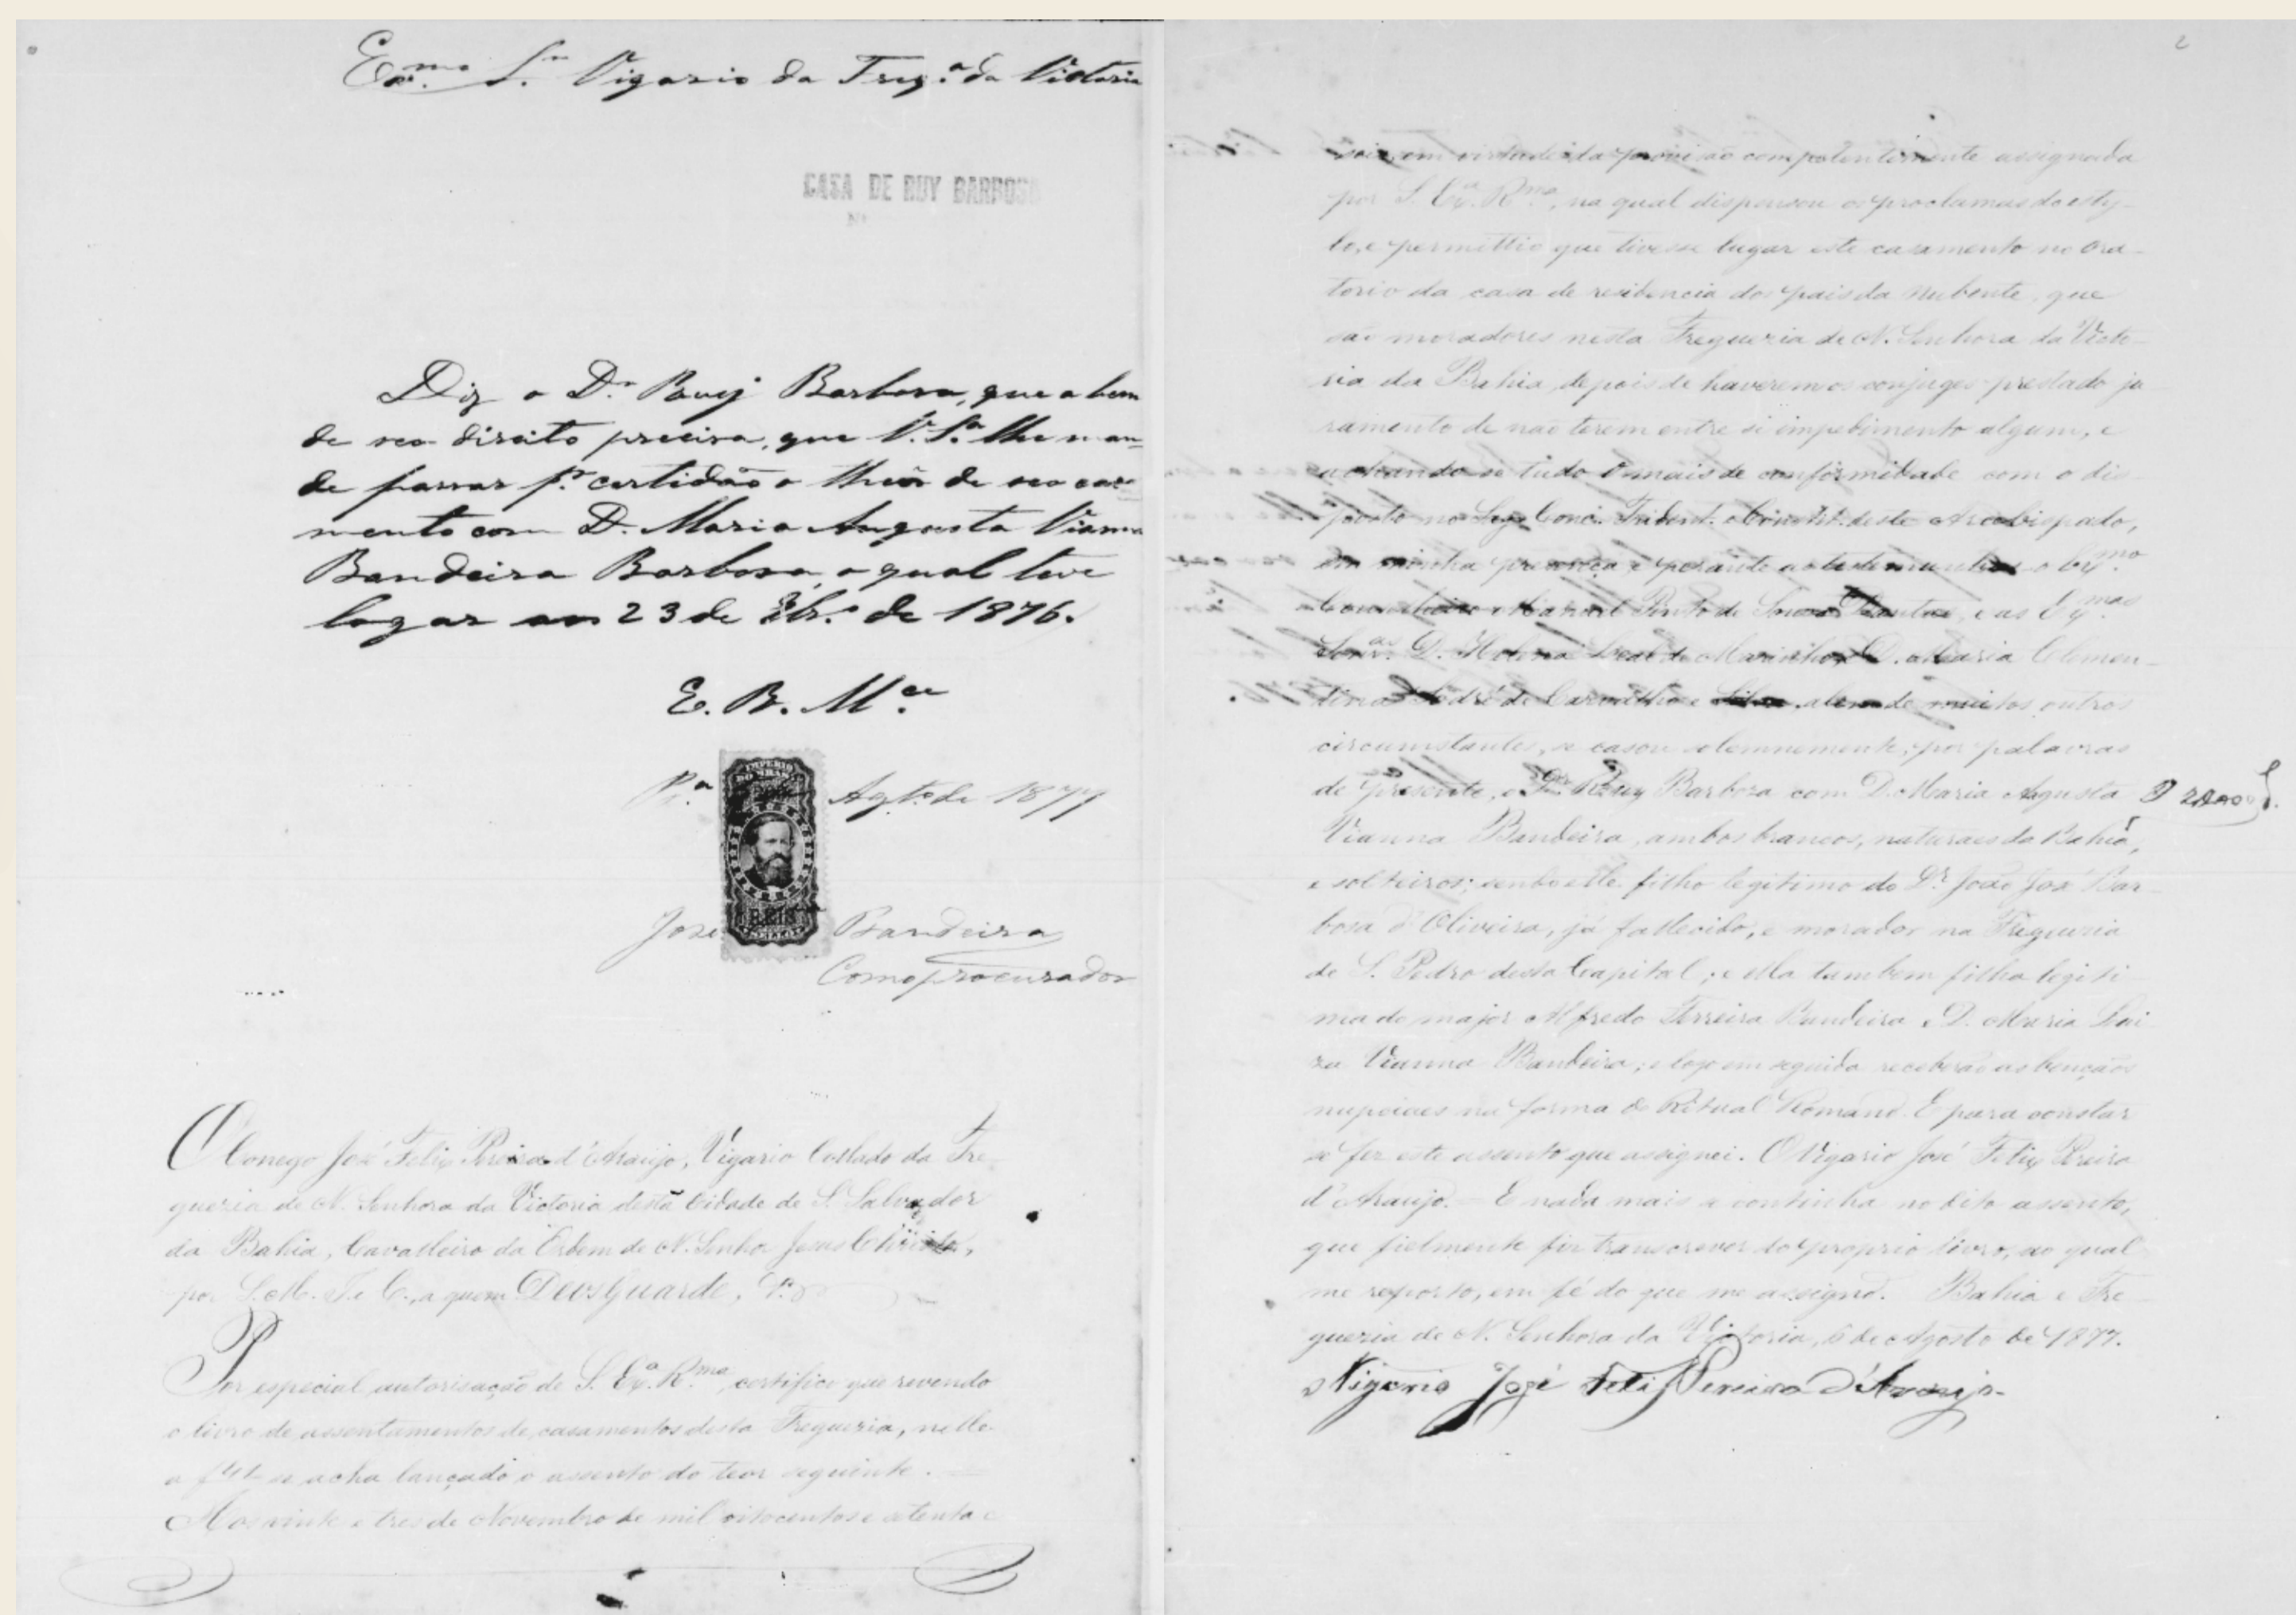 Exmo Snr Vigario da Freg.a da Victoria
CASA DE RUY BARBOSA
Diz o Dr Ruy Barbosa, que a bem
de seo direito precisa, que V. S.a lhe man-
de passar p.r certidão o theôr de seo casa-
mento com D. Maria Augusta Vianna
Bandeira Barbosa, o qual teve
logar aos 23 de 9br.o de 1876.
E. R. M.ce
B.a Agto de 1877
IMPERIO DO BRASIL
REIS
José Bandeira
Como procurador
O Conego José Felix Pereira d'Araujo, Vigario Collado da Fre-
guezia de N. Senhora da Victoria desta Cidade de S. Salvador
da Bahia, Cavalleiro da Ordem de N. Senhor Jesus Christo,
por S. M. I. e C., a quem Deos Guarde,
Por especial autorisação de S. Ex.a R.ma, certifico que revendo
o livro de assentamentos de casamentos desta Freguezia, nelle
a f se acha lançado o assento do teor seguinte. =
Aos vinte e tres de Novembro de mil oitocentos e setenta e
2
seis, em virtude da provisão competentemente assignada
por S. Ex.a R.ma, na qual dispensou os proclamas do esty-
lo, e permittio que tivesse lugar este casamento no Ora-
torio da casa de residencia dos pais da nubente, que
são moradores nesta Freguezia de N. Senhora da Victo-
ria da Bahia, depois de haverem os conjuges prestado ju-
ramento de não terem entre si impedimento algum, e
achando-se tudo o mais de conformidade com o dis-
posto no Sag. Conc. Trident. e Constit. deste Arcebispado,
em minha presença e perante as testemunhas o Ex.mo
Conselheiro Manoel Pinto de Souza Dantas, e as Ex.mas
Senr.as D. Helena Leal de Marinho, D. Maria Clemen-
tina Sodré de Carvalho e Silva, alem de muitos outros
circumstantes, se casou solemnemente, por palavras
de presente, o Dr Ruy Barbosa com D. Maria Augusta
Vianna Bandeira, ambos brancos, naturaes da Bahia,
e solteiros; sendo elle filho legitimo do Dr João José Bar-
bosa d'Oliveira, já fallecido, e morador na Freguezia
de S. Pedro desta Capital; e ella tambem filha legiti-
ma do major Alfredo Ferreira Bandeira e D. Maria Lui-
za Vianna Bandeira; e logo em seguida receberão as bençãos
nupciaes na forma do Ritual Romano. E para constar
se fez este assento que assignei. O Vigario José Felix Pereira
d'Araujo. = E nada mais se continha no dito assento,
que fielmente fiz transcrever do proprio livro, ao qual
me reporto, em fé do que me assigno. Bahia e Fre-
guezia de N. Senhora da Victoria, 6 de Agosto de 1877.
O Vigario José Felix Pereira d'Araujo